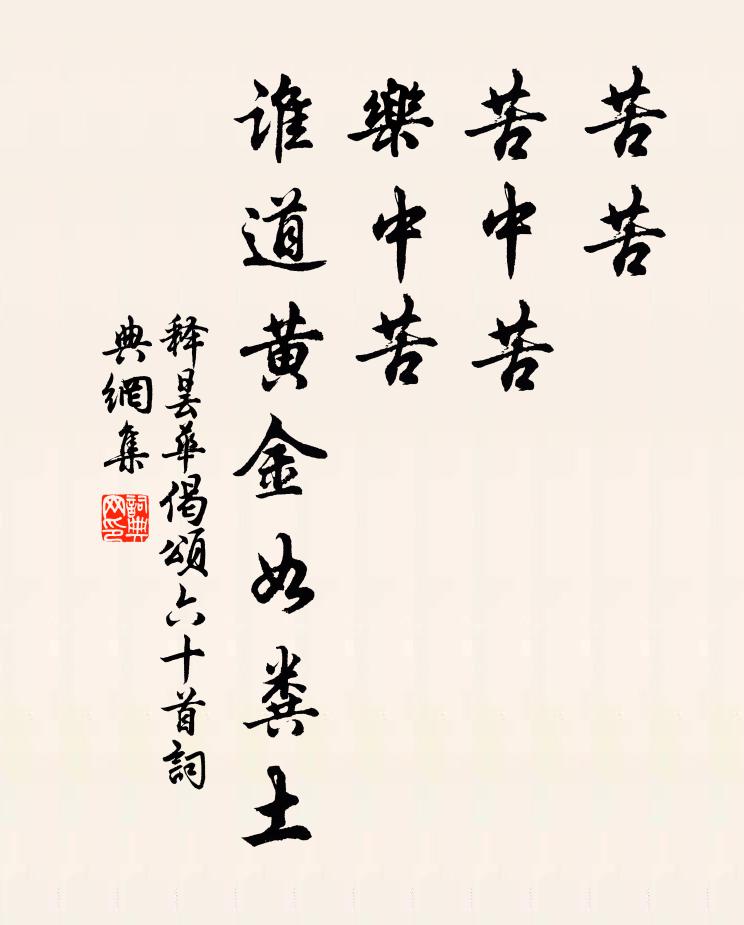 苦苦
苦中苦
樂中苦
誰道黃金如糞土
釋曇華偈頌六十首詞
典網集
詞典
网印